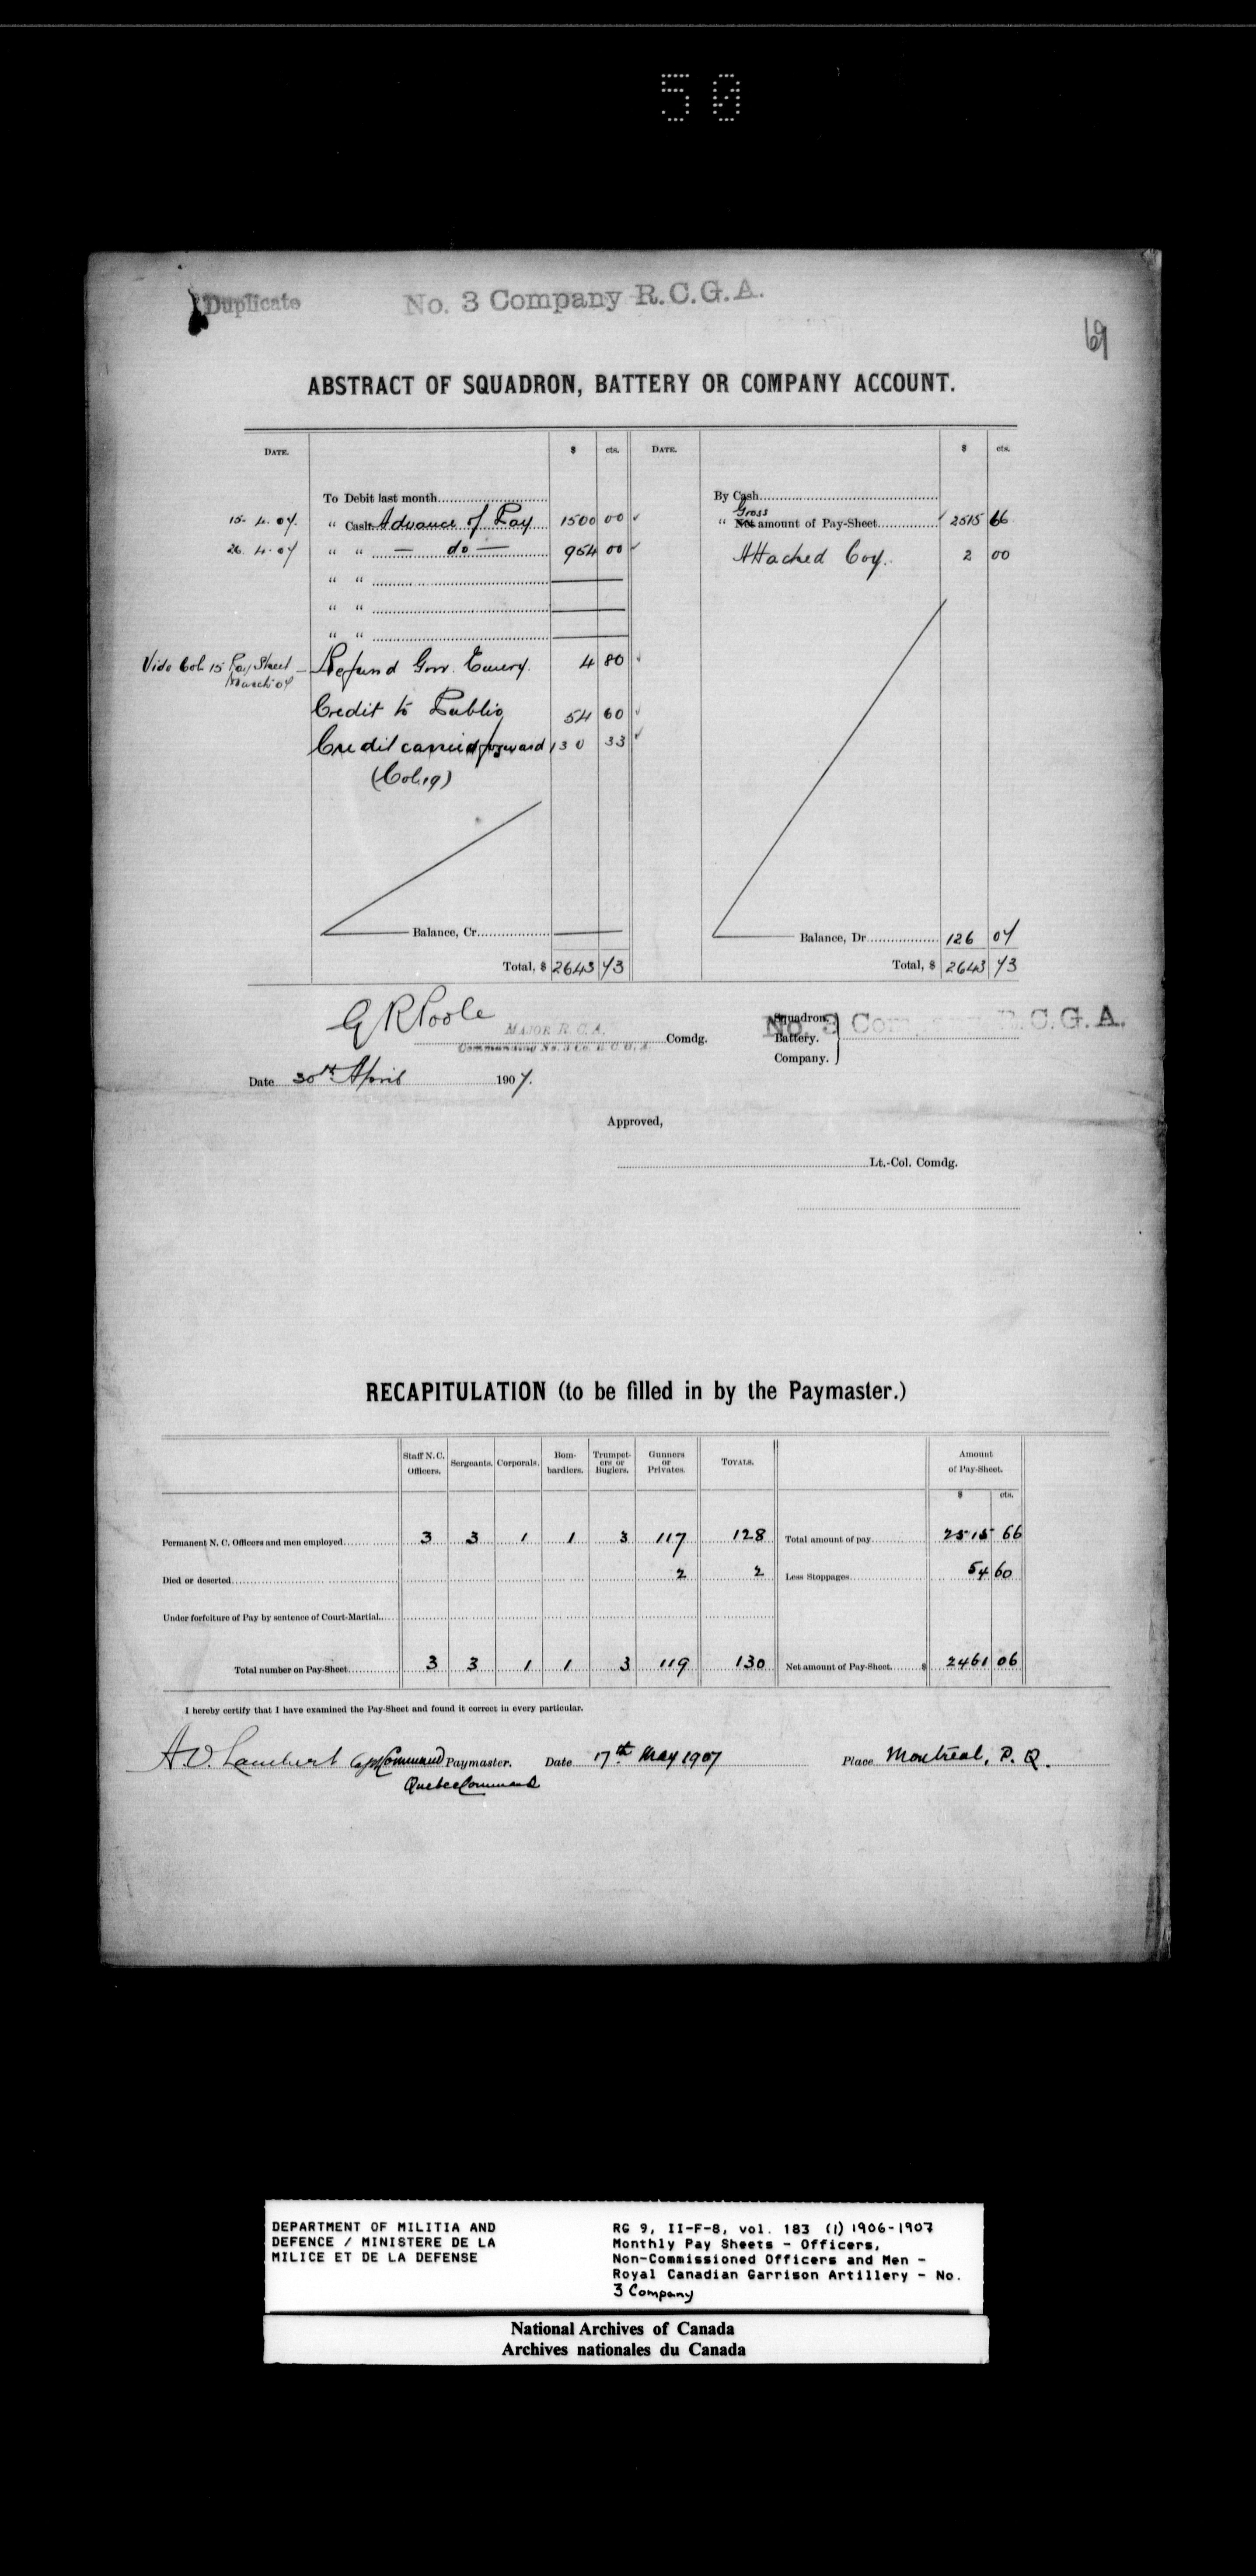 50
Duplicate
No. 3 Company R.C.G.A.
69
ABSTRACT OF SQUADRON, BATTERY OR COMPANY ACCOUNT.
DATE. $ cts. DATE. $ cts.
To Debit last month By Cash
15-4-07. " Cash Advance of Pay 1500 00 Gross
" Net amount of Pay-Sheet 2515 66
26.4.07 " " — do — 954 00 Attached Coy. 2 00
" "
" "
" "
Vide Col 15 Pay Sheet March 07 Refund Gov. 4 80
Credit to Public 54 60
Credit carried forward 130 33
(Col.19)
Balance, Cr. Balance, Dr. 126 07
Total, $ 2643 73 Total, $ 2643 73
G R Poole
MAJOR R.C.A.
Commanding No. 3 Co. R C G A. Comdg.
Squadron.
Battery.
Company.
No. 3 Company R.C.G.A.
Date 30th April 1907.
Approved,
Lt.-Col. Comdg.
RECAPITULATION (to be filled in by the Paymaster.)
Staff N.C. Officers. Sergeants. Corporals. Bom-bardiers. Trumpet-ers or Buglers. Gunners or Privates. TOTALS. Amount of Pay-Sheet.
$ cts.
Permanent N. C. Officers and men employed 3 3 1 1 3 117 128 Total amount of pay 2515 66
Died or deserted 2 2 Less Stoppages 54 60
Under forfeiture of Pay by sentence of Court-Martial
Total number on Pay-Sheet 3 3 1 1 3 119 130 Net amount of Pay-Sheet $ 2461 06
I hereby certify that I have examined the Pay-Sheet and found it correct in every particular.
A.O. Lambert Capt Command Paymaster. Date 17th May 1907 Place Montreal, P. Q.
Quebec Command
DEPARTMENT OF MILITIA AND
DEFENCE / MINISTERE DE LA
MILICE ET DE LA DEFENSE
RG 9, II-F-8, vol. 183 (1) 1906-1907
Monthly Pay Sheets - Officers,
Non-Commissioned Officers and Men -
Royal Canadian Garrison Artillery - No.
3 Company
National Archives of Canada
Archives nationales du Canada